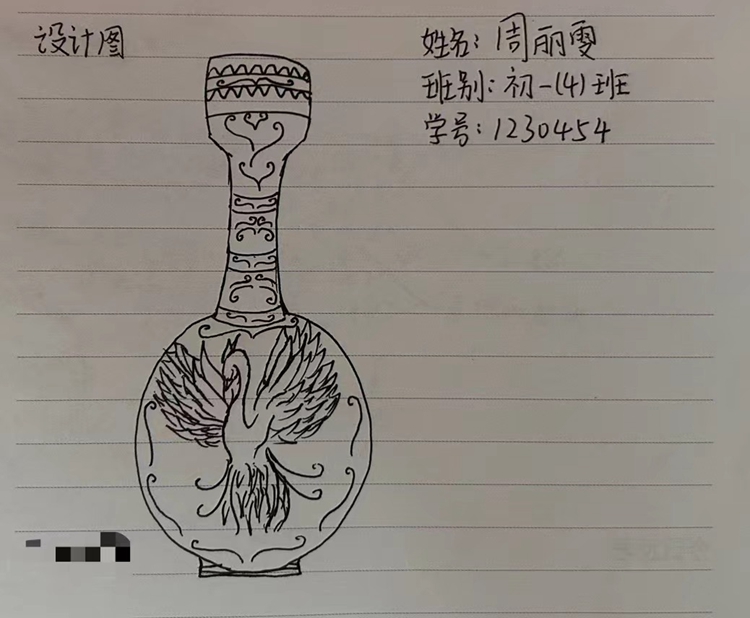 设计图
姓名：周丽雯
班别：初一(4)班
学号：1230454